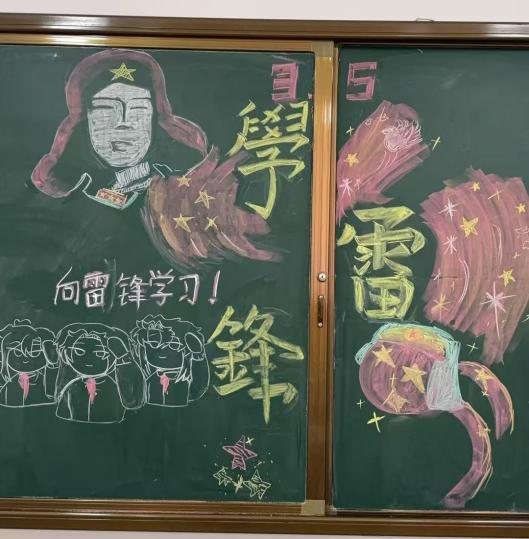 3.5
學
雷
鋒
向雷锋学习！